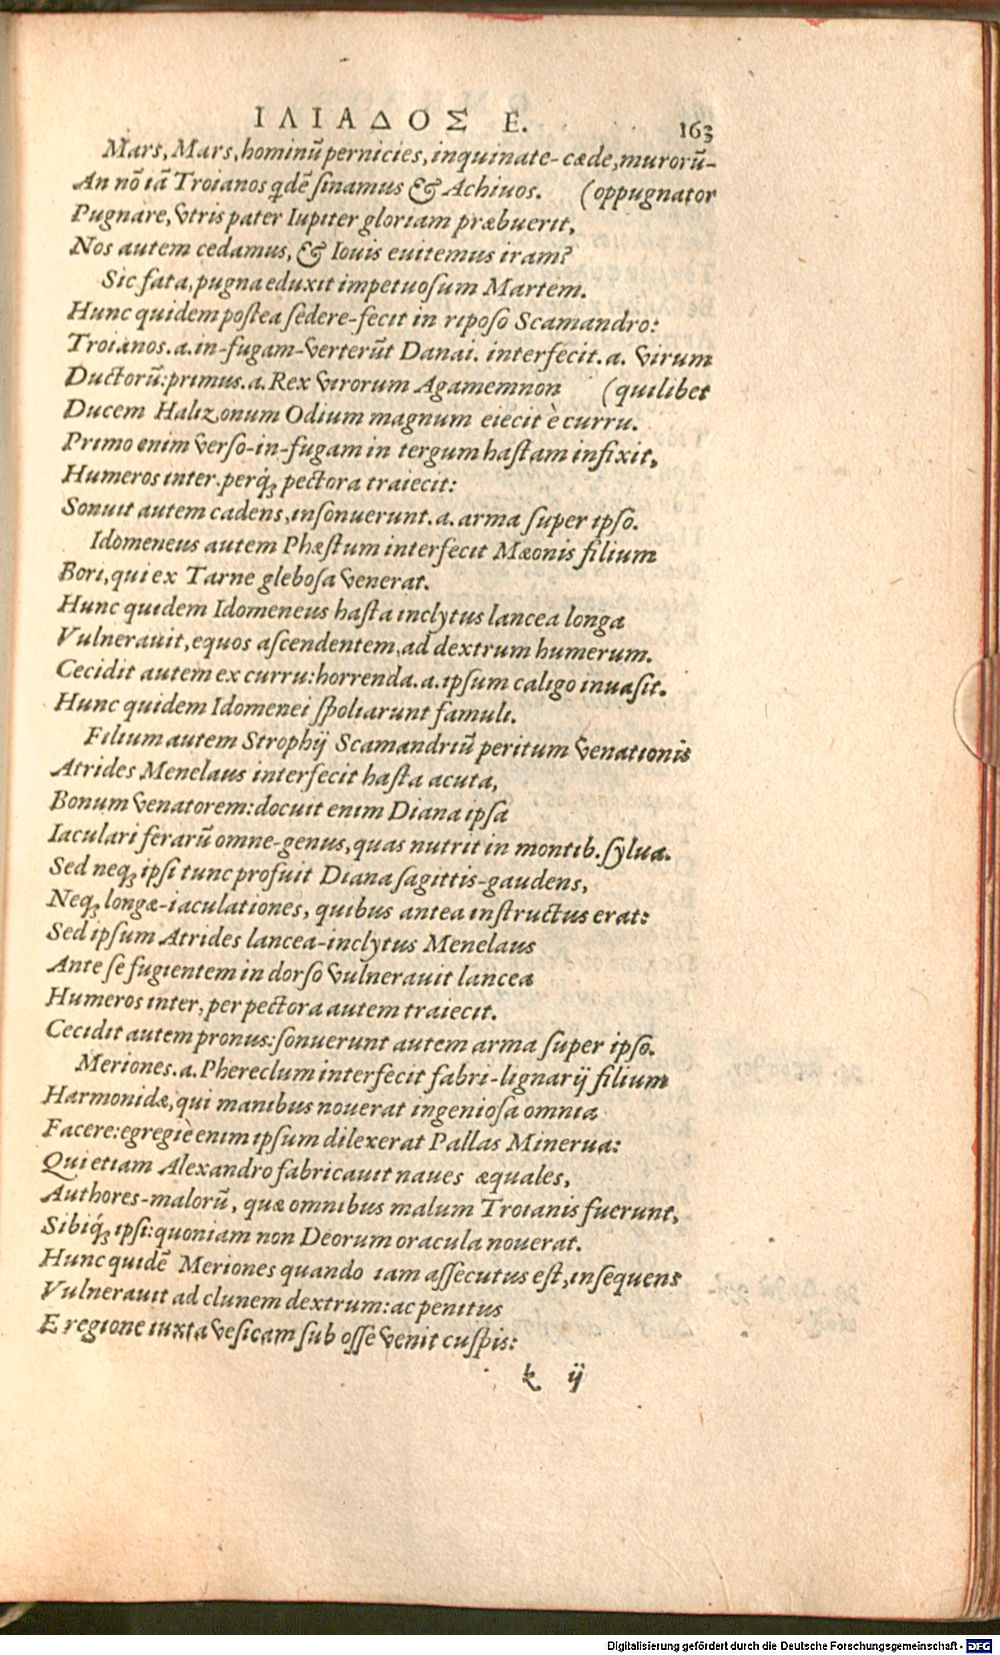 ΙΛΙΑΔΟΣ Ε. 163
Mars, Mars, hominũ pernicies, inquinate-cæde, murorũ-
An nõ iã Troianos qdẽ sinamus & Achiuos. (oppugnator
Pugnare, vtris pater Iupiter gloriam præbuerit,
Nos autem cedamus, & Iouis euitemus iram?
Sic fata, pugna eduxit impetuosum Martem.
Hunc quidem postea sedere-fecit in riposo Scamandro:
Troianos .a. in-fugam-verterũt Danai. interfecit .a. virum
Ductorũ: primus .a. Rex virorum Agamemnon (quilibet
Ducem Halizonum Odium magnum eiecit è curru.
Primo enim verso-in-fugam in tergum hastam infixit,
Humeros inter. perq; pectora traiecit:
Sonuit autem cadens, insonuerunt .a. arma super ipso.
Idomeneus autem Phæstum interfecit Mæonis filium
Bori, qui ex Tarne glebosa venerat.
Hunc quidem Idomeneus hasta inclytus lancea longa
Vulnerauit, equos ascendentem, ad dextrum humerum.
Cecidit autem ex curru: horrenda .a. ipsum caligo inuasit.
Hunc quidem Idomenei spoliarunt famuli.
Filium autem Strophij Scamandriũ peritum venationis
Atrides Menelaus interfecit hasta acuta,
Bonum venatorem: docuit enim Diana ipsa
Iaculari ferarũ omne-genus, quas nutrit in montib. sylua.
Sed neq; ipsi tunc profuit Diana sagittis-gaudens,
Neq; longæ-iaculationes, quibus antea instructus erat:
Sed ipsum Atrides lancea-inclytus Menelaus
Ante se fugientem in dorso vulnerauit lancea
Humeros inter, per pectora autem traiecit.
Cecidit autem pronus: sonuerunt autem arma super ipso.
Meriones .a. Phereclum interfecit fabri-lignarij filium
Harmonidæ, qui manibus nouerat ingeniosa omnia
Facere: egregiè enim ipsum dilexerat Pallas Minerua:
Qui etiam Alexandro fabricauit naues æquales,
Authores-malorũ, quæ omnibus malum Troianis fuerunt,
Sibiq; ipsi: quoniam non Deorum oracula nouerat.
Hunc quidẽ Meriones quando iam assecutus est, insequens
Vulnerauit ad clunem dextrum: ac penitus
E regione iuxta vesicam sub osse venit cuspis:
k ij
Digitalisierung gefördert durch die Deutsche Forschungsgemeinschaft - DFG